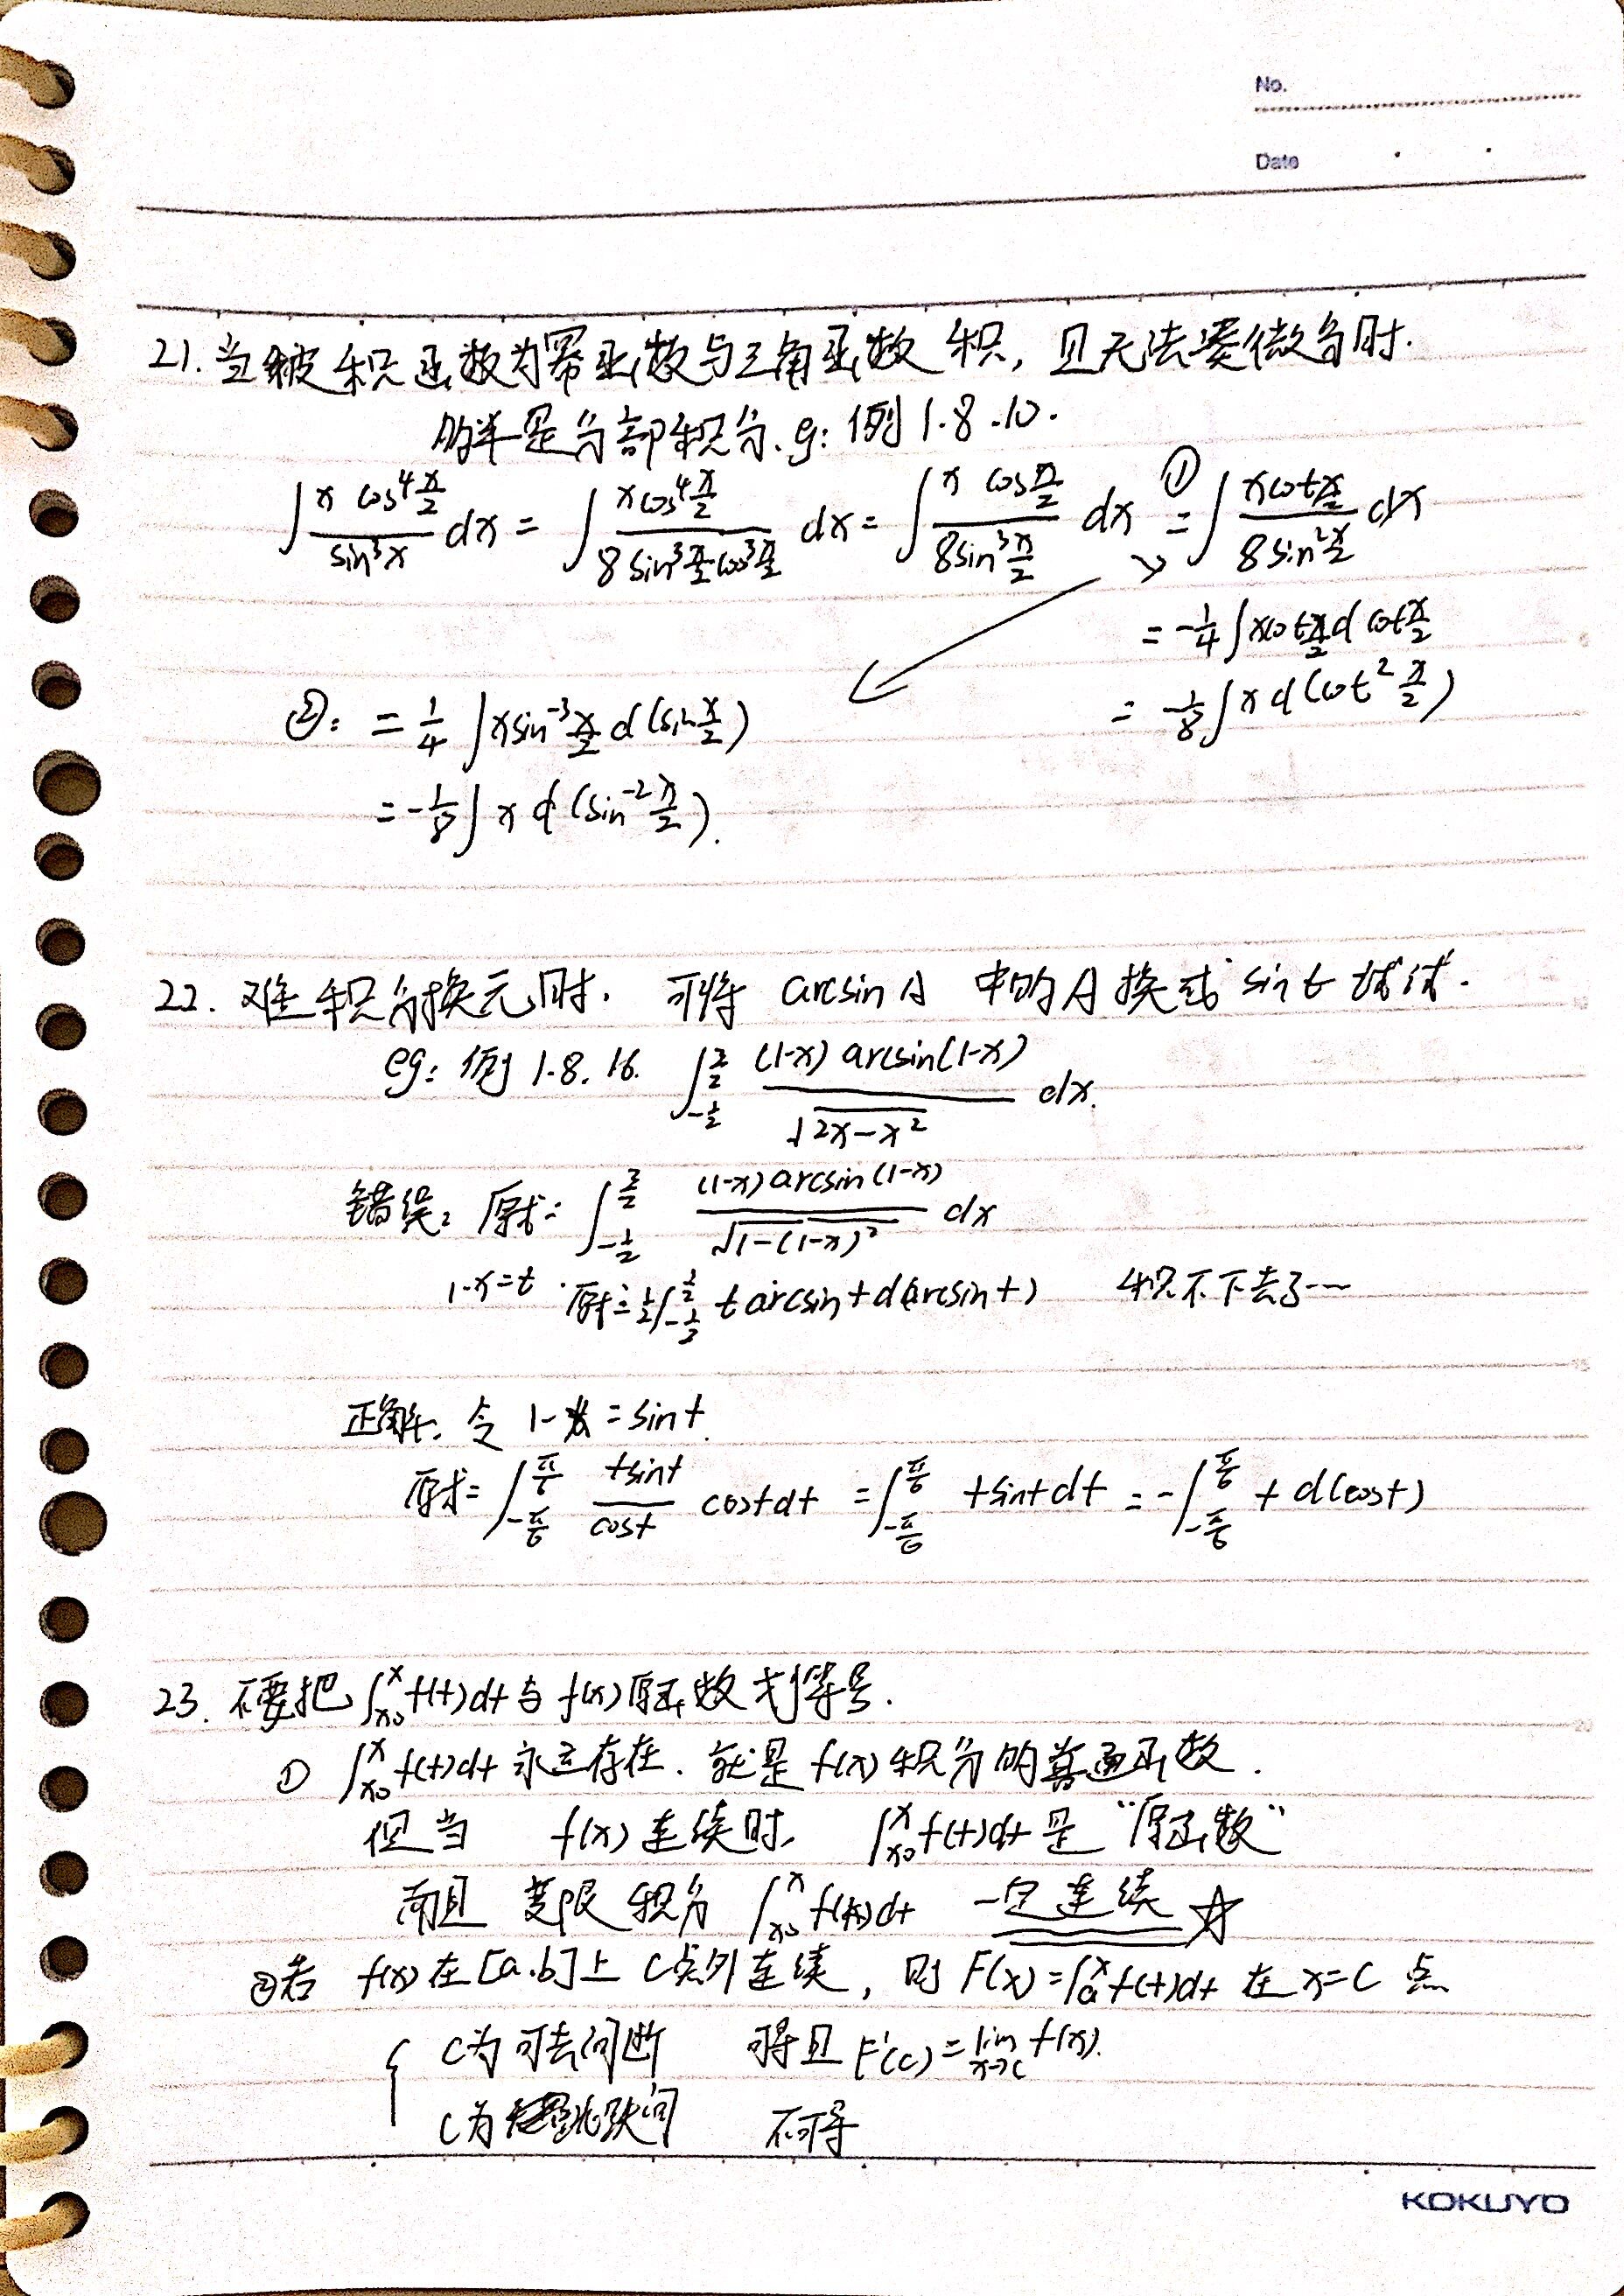 No.
Date
21. 当被积函数为幂函数与三角函数积, 且无法凑微分时.
的半是分部积分. eg: 例 1.8.10.
∫ (x cos⁴ x/2)/(sin³x) dx = ∫ (x cos⁴ x/2)/(8 sin³ x/2 cos³ x/2) dx = ∫ (x cos x/2)/(8 sin³ x/2) dx ①= ∫ (x cot x/2)/(8 sin² x/2) dx
= -1/4 ∫ x cot x/2 d cot x/2
= -1/8 ∫ x d (cot² x/2)
②: = 1/4 ∫ x sin⁻³ x/2 d (sin x/2)
= -1/8 ∫ x d (sin⁻² x/2).
22. 难积分换元时. 可将 arcsin A 中的 A 换成 sin t 试试.
eg: 例 1.8.16. ∫_{-1/2}^{3/2} ((1-x) arcsin(1-x))/√(2x-x²) dx.
错误: 原式= ∫_{-1/2}^{3/2} ((1-x) arcsin(1-x))/√(1-(1-x)²) dx
1-x=t . 原式= 1/2 ∫_{-1/2}^{1/2} t arcsin t d(arcsin t) 积不下去了…
正解. 令 1-x = sin t.
原式= ∫_{-π/6}^{π/6} (t sin t)/(cos t) cos t dt = ∫_{-π/6}^{π/6} t sin t dt = -∫_{-π/6}^{π/6} t d(cos t)
23. 不要把 ∫_{x₀}^{x} f(t)dt 与 f(x) 原函数划等号.
① ∫_{x₀}^{x} f(t)dt 永远存在. 就是 f(x) 积分的普通函数.
但当 f(x) 连续时, ∫_{x₀}^{x} f(t)dt 是 “原函数”
而且 变限积分 ∫_{x₀}^{x} f(t)dt 一定连续 ☆
②若 f(x) 在 [a.b] 上 C点外连续, 则 F(x) = ∫_{a}^{x} f(t)dt 在 x=C 点
{ C为可去间断 可导且 F'(c) = lim_{x→c} f(x).
C为跳跃间 不可导
KOKUYO